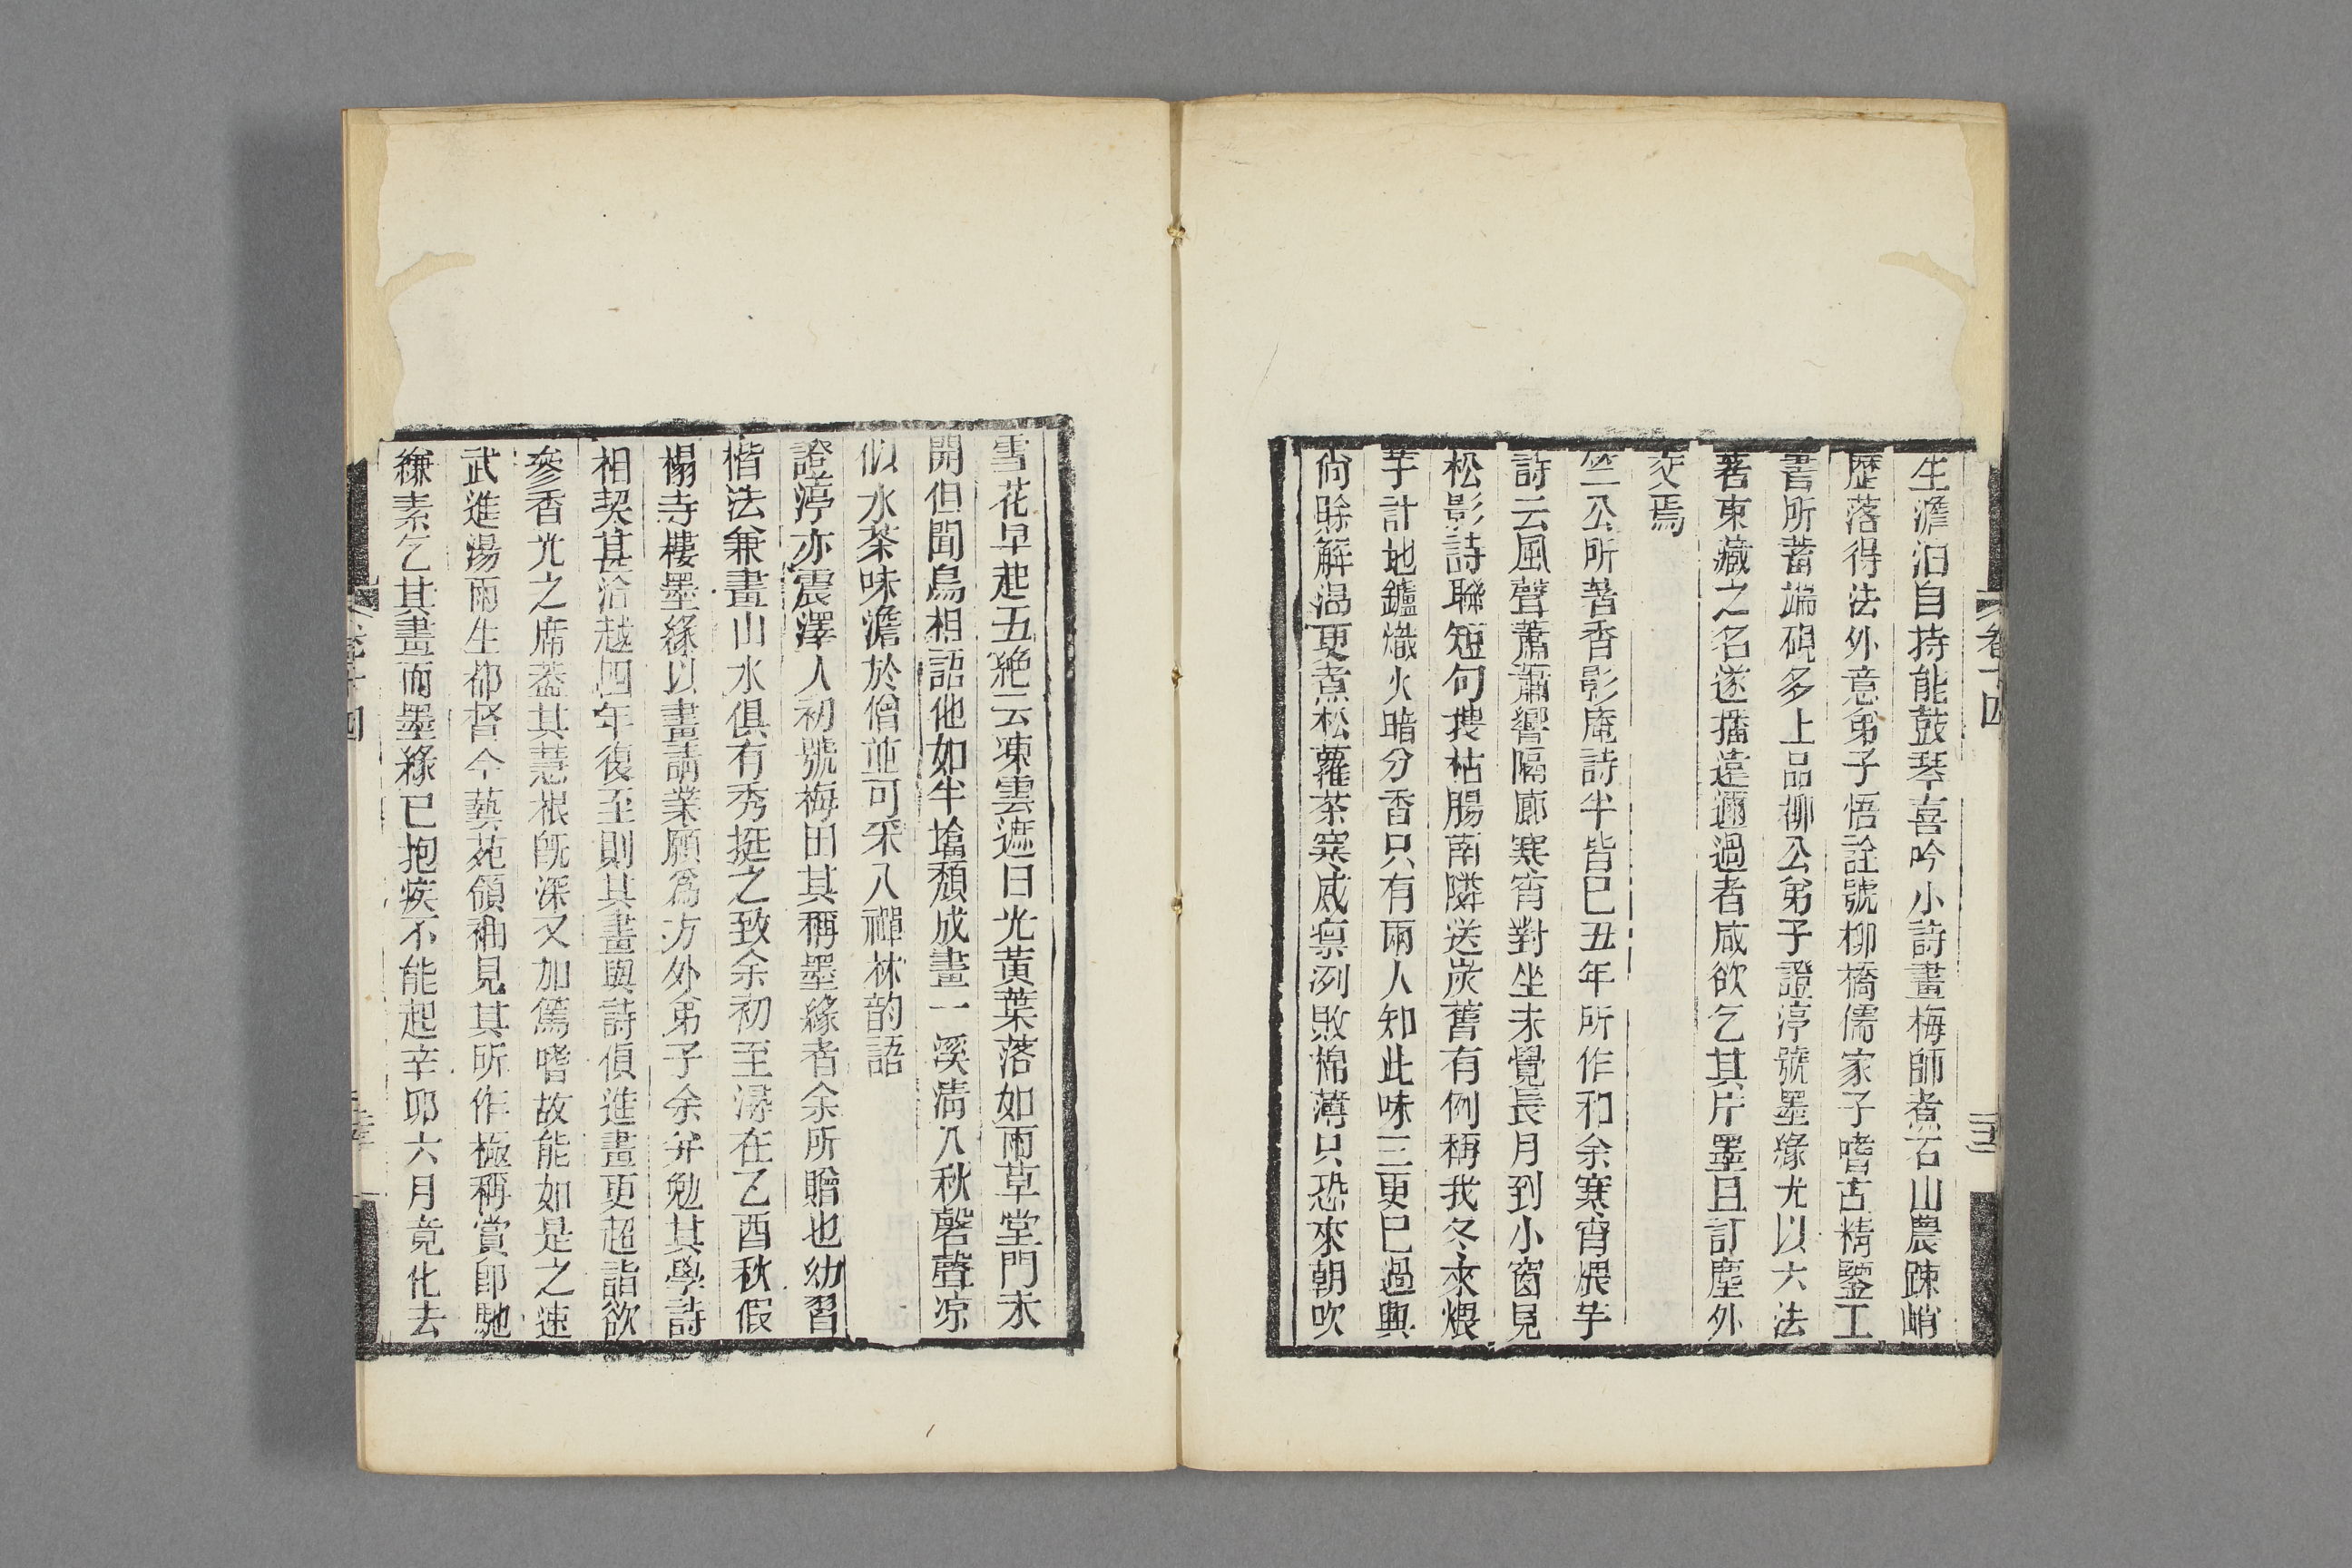 卷十四
生澹泊自持能鼓琴喜吟小詩畫梅師煮石山農疎峭
歷落得法外意弟子悟詮號柳橋儒家子嗜古精鑒工
書所蓄端硯多上品柳公弟子證渟號墨緣尤以六法
著東藏之名遂播遠邇過者咸欲乞其片墨且訂塵外
交焉
竺公所著香影庵詩半皆巳丑年所作和余寒宵煨芋
詩云風聲蕭蕭響隔廊寒宵對坐未覺長月到小窗見
松影詩聯短句搜枯腸南隣送炭舊有例稱我冬來煨
芋計地鑪熾火暗分香只有兩人知此味三更巳過興
尙賒解渴更煮松蘿茶寒威凛冽敗棉薄只恐來朝吹
雪花早起五絶云凍雲遮日光黃葉落如雨草堂門未
開但聞鳥相語他如半墖頽成畫一溪淸入秋磬聲凉
似水茶味澹於僧並可采入禪林韵語
證渟亦震澤人初號梅田其稱墨緣者余所贈也幼習
楷法兼畫山水俱有秀挺之致余初至潯在乙酉秋假
榻寺樓墨緣以畫請業願爲方外弟子余并勉其學詩
相契甚洽越四年復至則其畫與詩偵進畫更超詣欲
參香光之席蓋其慧根旣深又加篤嗜故能如是之速
武進湯雨生都督今藝苑領袖見其所作極稱賞卽馳
縑素乞其畫而墨緣已抱疾不能起辛卯六月竟化去